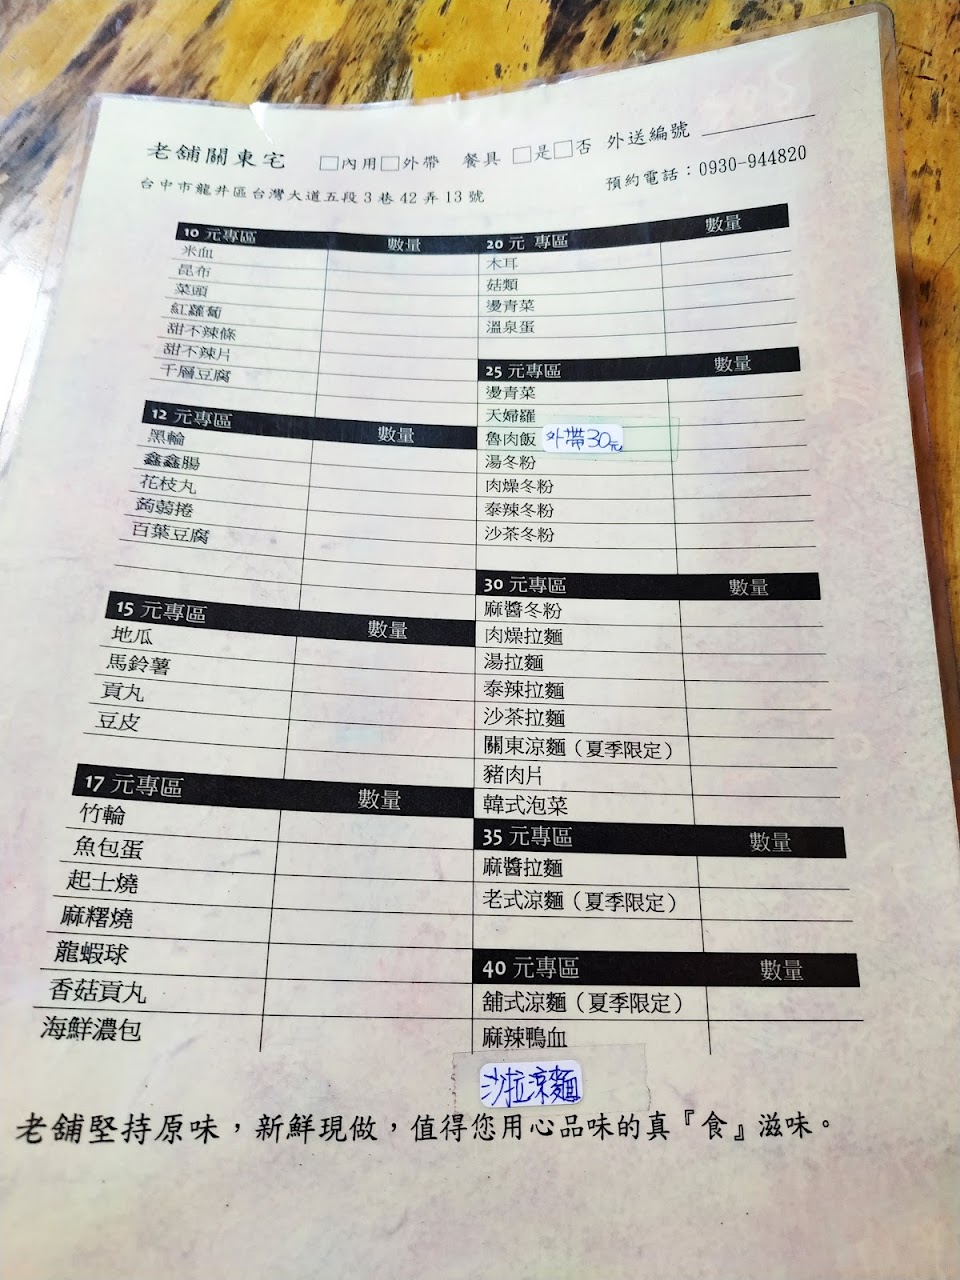 老舖關東宅 □內用□外帶 餐具 □是□否 外送編號
台中市龍井區台灣大道五段3巷42弄13號 預約電話：0930-944820
10 元專區 數量
米血
昆布
菜頭
紅蘿蔔
甜不辣條
甜不辣片
千層豆腐
12 元專區 數量
黑輪
鑫鑫腸
花枝丸
蒟蒻捲
百葉豆腐
15 元專區 數量
地瓜
馬鈴薯
貢丸
豆皮
17 元專區 數量
竹輪
魚包蛋
起士燒
麻糬燒
龍蝦球
香菇貢丸
海鮮濃包
20 元 專區 數量
木耳
菇類
燙青菜
溫泉蛋
25 元專區 數量
燙青菜
天婦羅
魯肉飯 外帶30元
湯冬粉
肉燥冬粉
泰辣冬粉
沙茶冬粉
30 元專區 數量
麻醬冬粉
肉燥拉麵
湯拉麵
泰辣拉麵
沙茶拉麵
關東涼麵（夏季限定）
豬肉片
韓式泡菜
35 元專區 數量
麻醬拉麵
老式涼麵（夏季限定）
40 元專區 數量
舖式涼麵（夏季限定）
麻辣鴨血
沙拉涼麵
老舖堅持原味，新鮮現做，值得您用心品味的真『食』滋味。